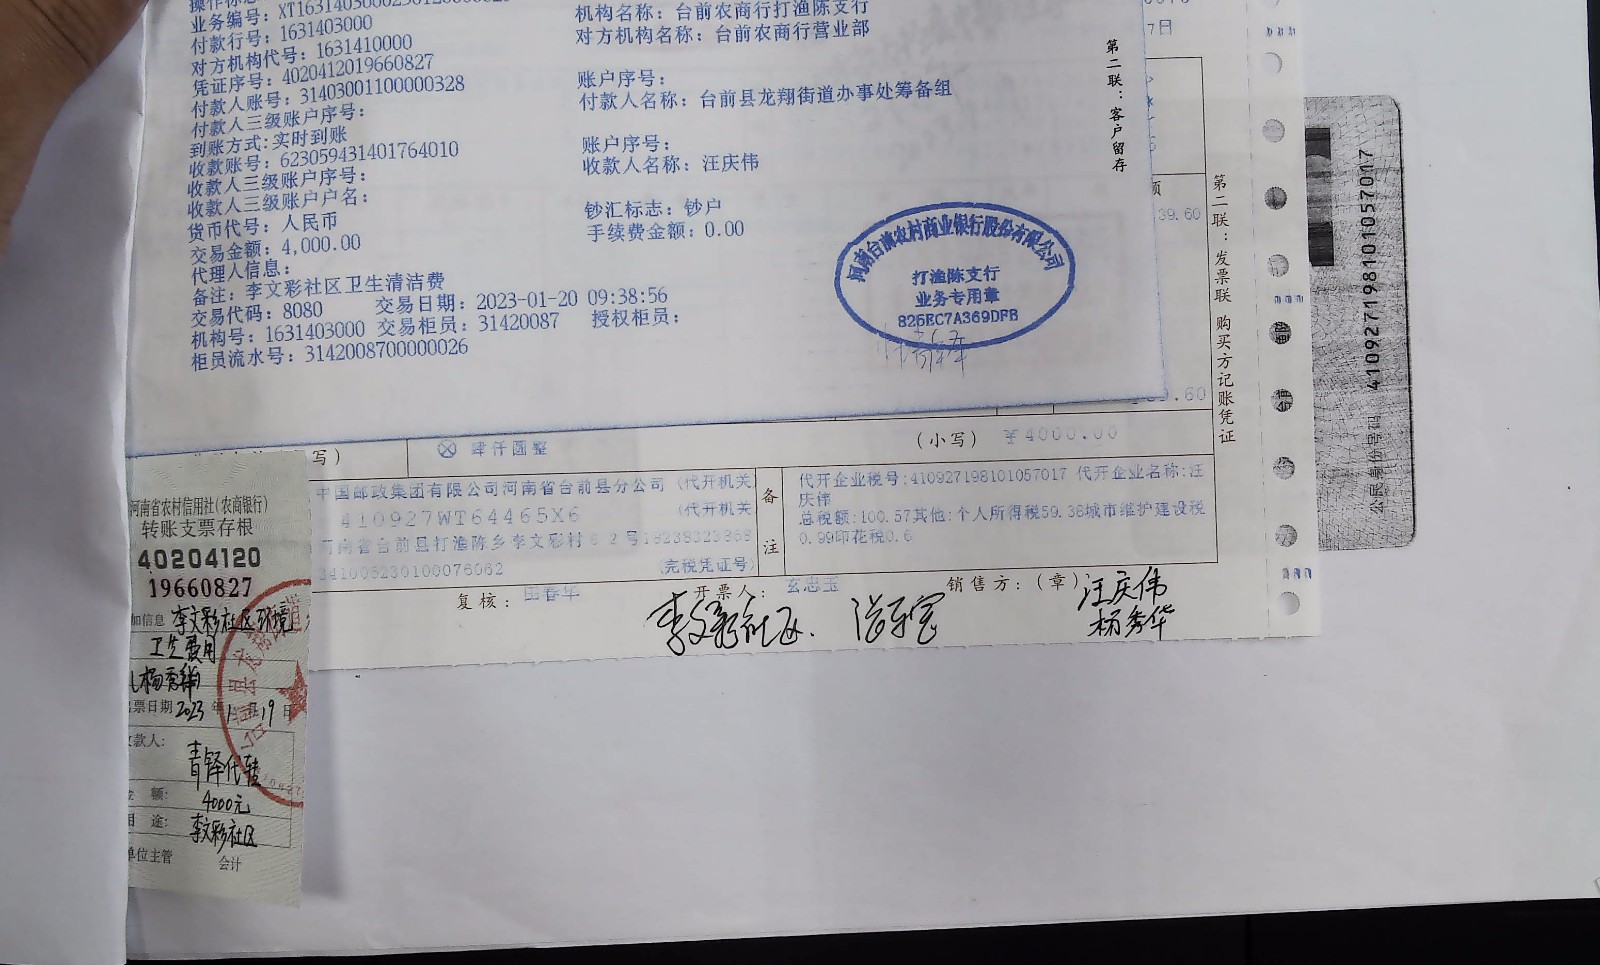 业务编号：XT
付款行号：1631403000
对方机构代号：1631410000
凭证序号：4020412019660827
付款人账号：31403001100000328
付款人三级账户序号：
到账方式：实时到账
收款账号：623059431401764010
收款人三级账户序号：
收款人三级账户户名：
货币代号：人民币
交易金额：4,000.00
代理人信息：
备注：李文彩社区卫生清洁费
交易代码：8080 交易日期：2023-01-20 09:38:56
机构号：1631403000 交易柜员：31420087 授权柜员：
柜员流水号：3142008700000026
机构名称：台前农商行打渔陈支行
对方机构名称：台前农商行营业部
账户序号：
付款人名称：台前县龙翔街道办事处筹备组
账户序号：
收款人名称：汪庆伟
钞汇标志：钞户
手续费金额：0.00
第二联：客户留存
河南台前农村商业银行股份有限公司
打渔陈支行
业务专用章
825EC7A369DFB
7日
39.60
第二联：发票联 购买方记账凭证
写）
肆仟圆整
（小写）
￥4000.00
中国邮政集团有限公司河南省台前县分公司（代开机关
410927WT64465X6
（代开机关
河南省台前县打渔陈乡李文彩村62号18238323368
341006230100076062
（完税凭证号）
备注
代开企业税号：410927198101057017 代开企业名称：汪
庆伟
总税额：100.57其他：个人所得税59.38城市维护建设税
0.99印花税0.6
复核：
开票人：玄忠玉
销售方：（章）
汪庆伟
杨秀华
李文彩社区
河南省农村信用社（农商银行）
转账支票存根
40204120
19660827
加信息 李文彩社区环境
卫生费用
杨秀华
票日期 2023 年 1 月 19 日
款人：
青铎代转
额：
4000元
途：
李文彩社区
单位主管 会计
公民身份号码 410927198101057017